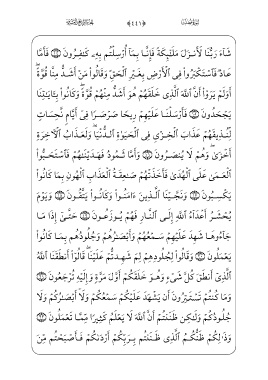 شَآءَ رَبُّنَا لَأَنزَلَ مَلَٰٓئِكَةً فَإِنَّا بِمَآ أُرْسِلْتُم بِهِۦ كَٰفِرُونَ ۝ فَأَمَّا
عَادٌ فَٱسْتَكْبَرُوا۟ فِى ٱلْأَرْضِ بِغَيْرِ ٱلْحَقِّ وَقَالُوا۟ مَنْ أَشَدُّ مِنَّا قُوَّةً ۖ
أَوَلَمْ يَرَوْا۟ أَنَّ ٱللَّهَ ٱلَّذِى خَلَقَهُمْ هُوَ أَشَدُّ مِنْهُمْ قُوَّةً ۖ وَكَانُوا۟ بِـَٔايَٰتِنَا
يَجْحَدُونَ ۝ فَأَرْسَلْنَا عَلَيْهِمْ رِيحًا صَرْصَرًا فِىٓ أَيَّامٍ نَّحِسَاتٍ
لِّنُذِيقَهُمْ عَذَابَ ٱلْخِزْىِ فِى ٱلْحَيَوٰةِ ٱلدُّنْيَا ۖ وَلَعَذَابُ ٱلْـَٔاخِرَةِ
أَخْزَىٰ ۖ وَهُمْ لَا يُنصَرُونَ ۝ وَأَمَّا ثَمُودُ فَهَدَيْنَٰهُمْ فَٱسْتَحَبُّوا۟
ٱلْعَمَىٰ عَلَى ٱلْهُدَىٰ فَأَخَذَتْهُمْ صَٰعِقَةُ ٱلْعَذَابِ ٱلْهُونِ بِمَا كَانُوا۟
يَكْسِبُونَ ۝ وَنَجَّيْنَا ٱلَّذِينَ ءَامَنُوا۟ وَكَانُوا۟ يَتَّقُونَ ۝ وَيَوْمَ
يُحْشَرُ أَعْدَآءُ ٱللَّهِ إِلَى ٱلنَّارِ فَهُمْ يُوزَعُونَ ۝ حَتَّىٰٓ إِذَا مَا
جَآءُوهَا شَهِدَ عَلَيْهِمْ سَمْعُهُمْ وَأَبْصَٰرُهُمْ وَجُلُودُهُم بِمَا كَانُوا۟
يَعْمَلُونَ ۝ وَقَالُوا۟ لِجُلُودِهِمْ لِمَ شَهِدتُّمْ عَلَيْنَا ۖ قَالُوٓا۟ أَنطَقَنَا ٱللَّهُ
ٱلَّذِىٓ أَنطَقَ كُلَّ شَىْءٍ وَهُوَ خَلَقَكُمْ أَوَّلَ مَرَّةٍ وَإِلَيْهِ تُرْجَعُونَ ۝
وَمَا كُنتُمْ تَسْتَتِرُونَ أَن يَشْهَدَ عَلَيْكُمْ سَمْعُكُمْ وَلَآ أَبْصَٰرُكُمْ وَلَا
جُلُودُكُمْ وَلَٰكِن ظَنَنتُمْ أَنَّ ٱللَّهَ لَا يَعْلَمُ كَثِيرًا مِّمَّا تَعْمَلُونَ ۝
وَذَٰلِكُمْ ظَنُّكُمُ ٱلَّذِى ظَنَنتُم بِرَبِّكُمْ أَرْدَىٰكُمْ فَأَصْبَحْتُم مِّنَ